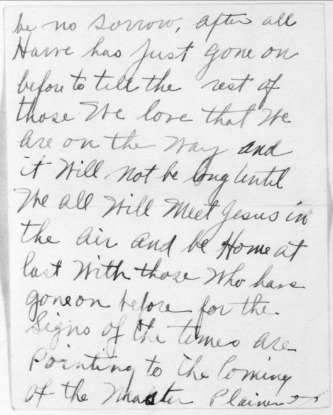 be no sorrow, after all
Harve has just gone on
before to tell the rest of
those We love that We
are on the Way and
it Will not be long Until
We all Will Meet Jesus in
the air and be Home at
last With those Who have
gone on before for the
Signs of the times are
Pointing to the Coming
of the Master Plainer